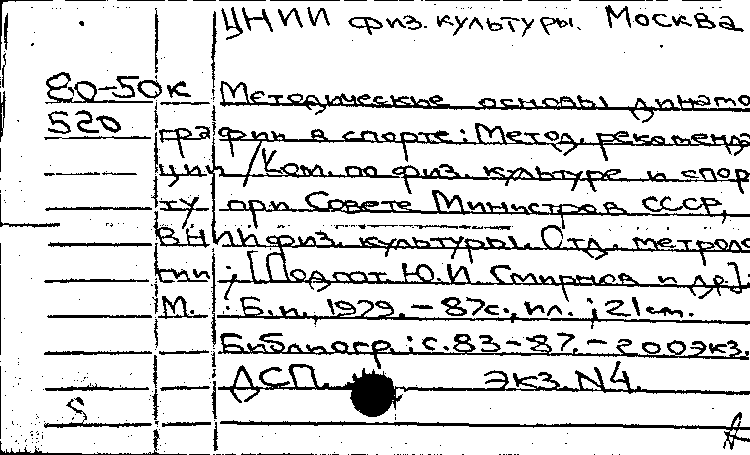 ЦНИИ физ. культуры. Москва
80-50к Методические основы динамо
520 графии в спорте: Метод. рекоменда
ции / Ком. по физ. культуре и спор
ту при Совете Министров СССР,
ВНИИ физ. культуры. Отд. метроло
гии; [Подгот. Ю.И. Смирнов и др].
М. : Б.и., 1979. - 87с., ил. ; 21см.
Библиогр.: с.83-87. - 200экз.
ДСП. экз. N4.